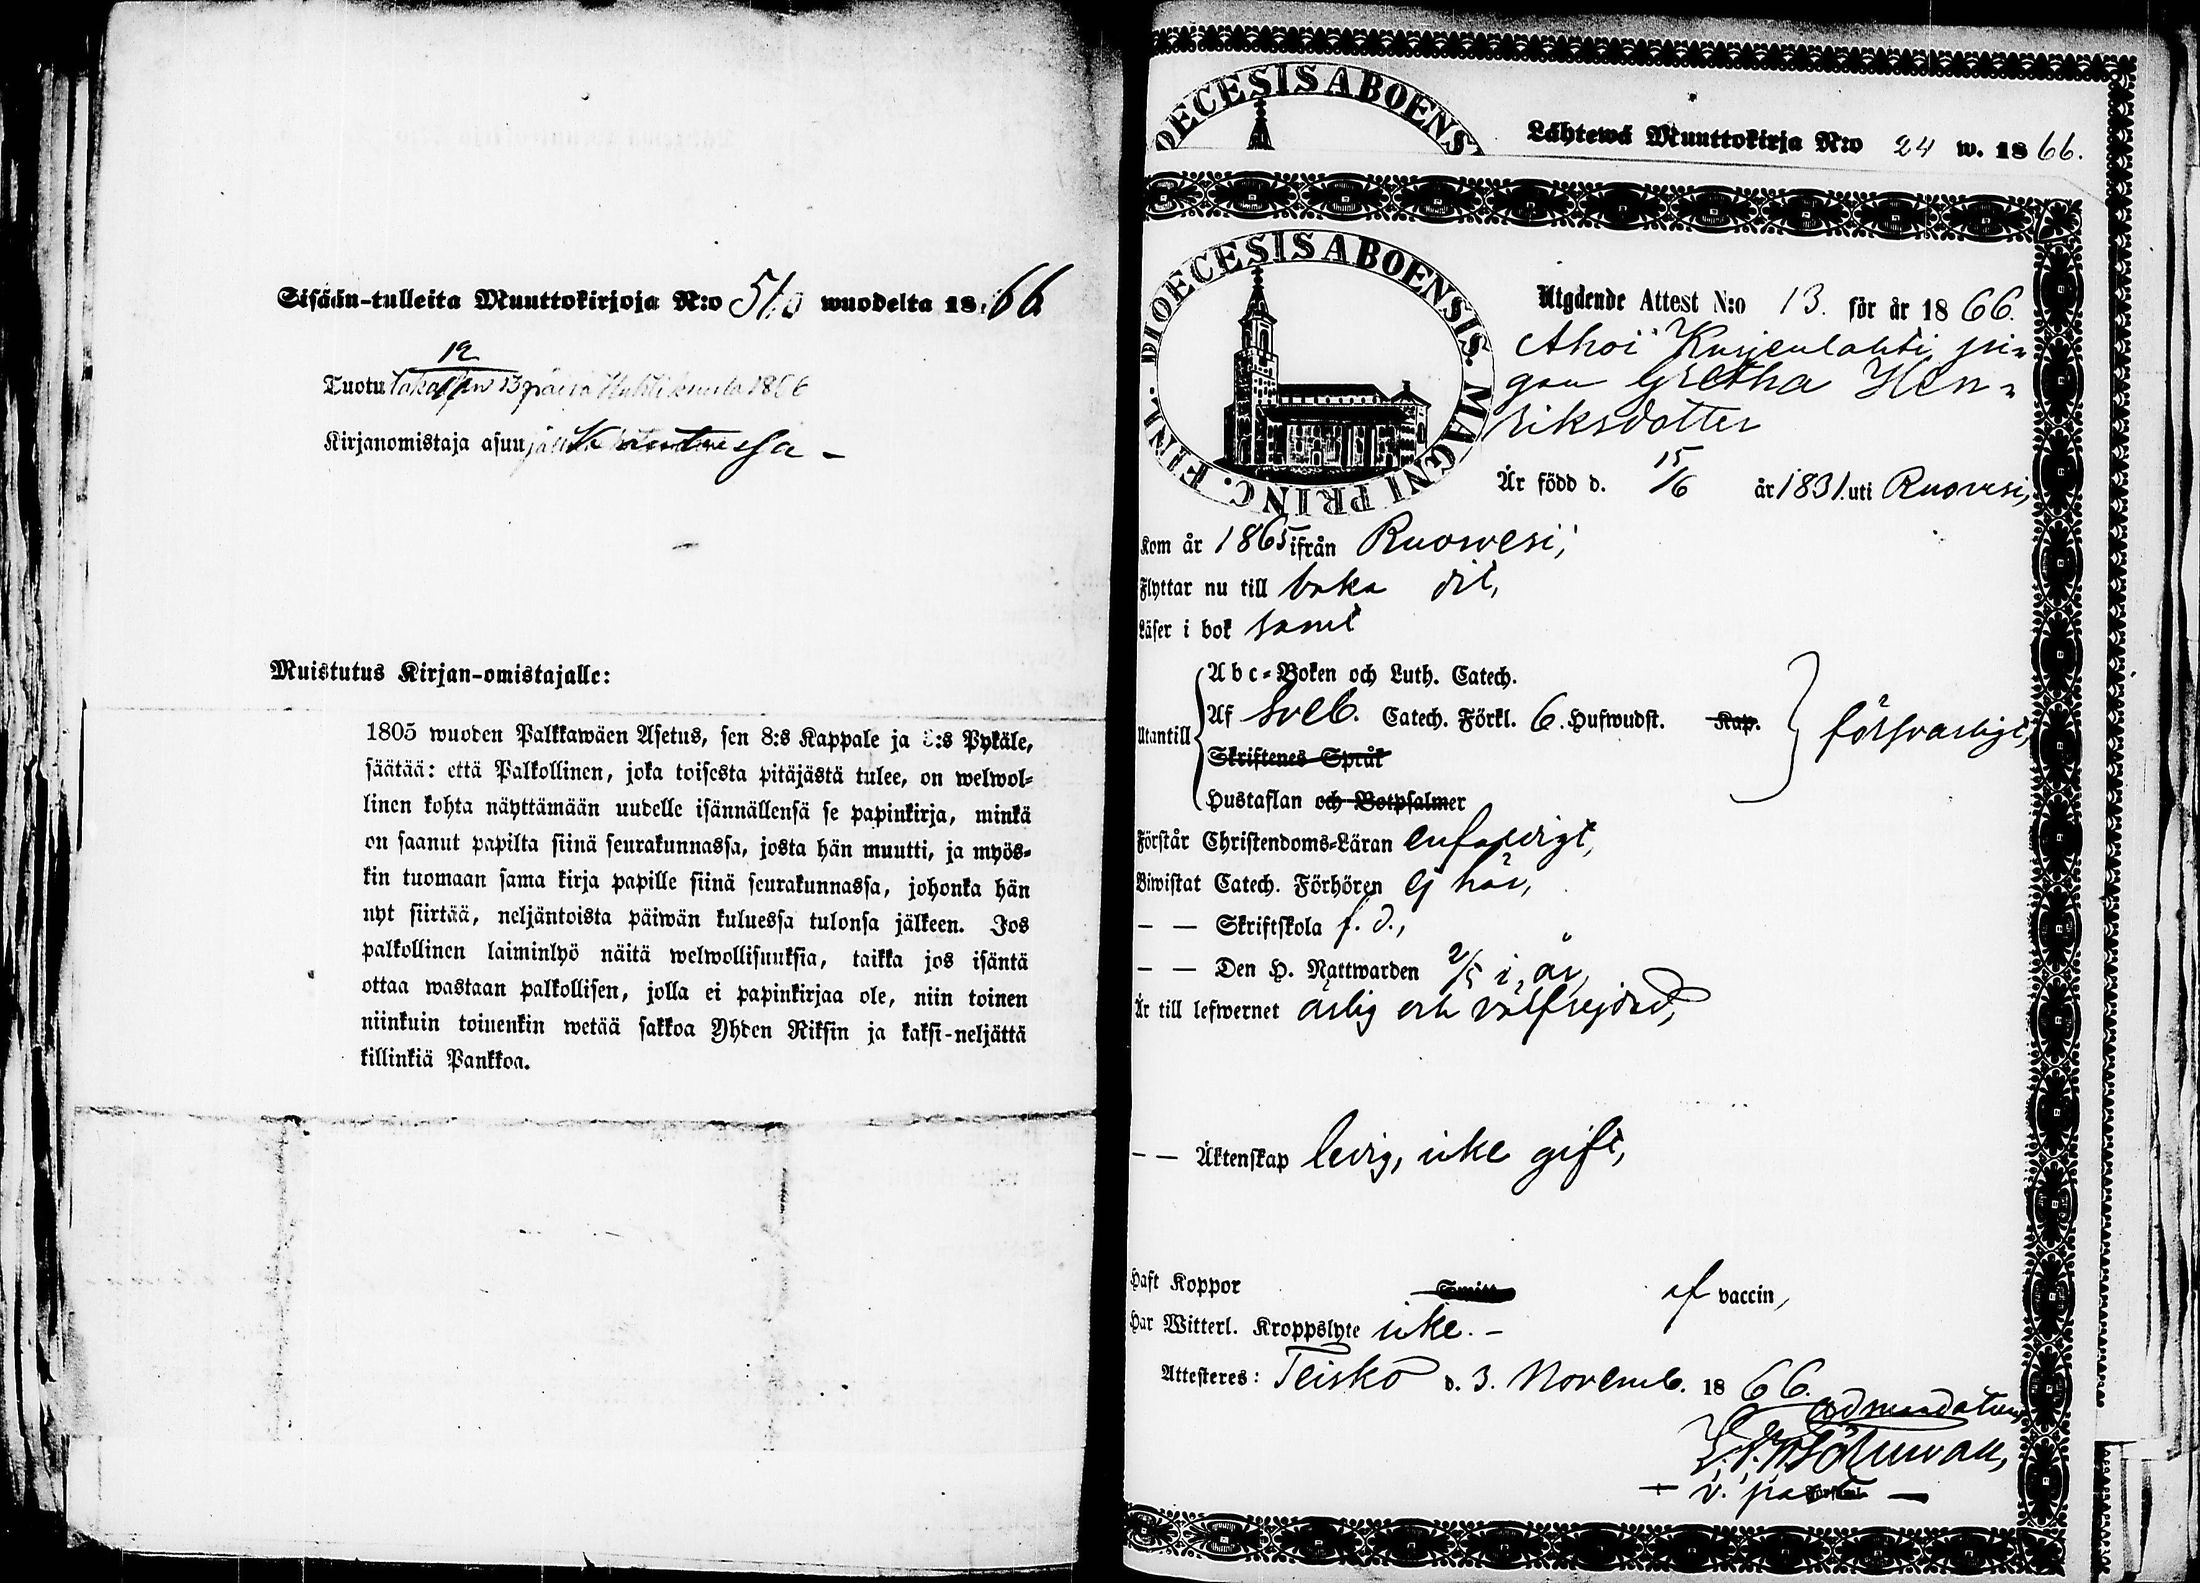 Sisään-tulleita Muuttokirjoja N:o wuodelta 1866
Tuotu 13 päivä Huhtikuuta 1866
Kirjanomistaja asuu
Muistutus Kirjan-omistajalle:
1805 wuoden Palkkawäen Asetus, sen 8:s Kappale ja :s Pykäle,
säätää: että Palkollinen, joka toisesta pitäjästä tulee, on welwol-
linen kohta näyttämään uudelle isännällensä se papinkirja, minkä
on saanut papilta siinä seurakunnassa, josta hän muutti, ja myös-
kin tuomaan sama kirja papille siinä seurakunnassa, johonka hän
nyt siirtää, neljäntoista päiwän kuluessa tulonsa jälkeen. Jos
palkollinen laiminlyö näitä welwollisuuksia, taikka jos isäntä
ottaa wastaan palkollisen, jolla ei papinkirjaa ole, niin toinen
niinkuin toinenkin wetää sakkoa Yhden Riksin ja kaksi-neljättä
killinkiä Pankkoa.
DIOECESIS ABOENS
Lähtewä Muuttokirja N:o 24 w. 1866.
DIOECESIS ABOENSIS. MAGNI PRINC. FINL.
Utgående Attest N:o 13. för år 1866.
Ahoi Kurjenlahti pi-
gan Gretha Hen-
riksdotter
Är född d. 15/6 år 1831. uti Ruovesi,
Kom år 1865 ifrån Ruovesi,
Flyttar nu till baka dit,
Läser i bok samt
Utantill
Abc-Boken och Luth. Catech.
Af Sveb. Catech. Förkl. 6. Hufwudst. Kap.
försvarligt,
Skriftenes Språk
Hustaflan och Botpsalmer
Förstår Christendoms-Läran enfaldigt,
Biwistat Catech. Förhören ej här,
— — Skriftskola f. d.,
— — Den H. Nattwarden 2/5 i. år,
Är till lefwernet ärlig och välfrejdad,
— — Äktenskap ledig, icke gift,
Haft Koppor Smitt af vaccin,
Har Witterl. Kroppslyte icke. —
Attesteres: Teisko d. 3. Novemb. 1866.
ad mandatum
v. past